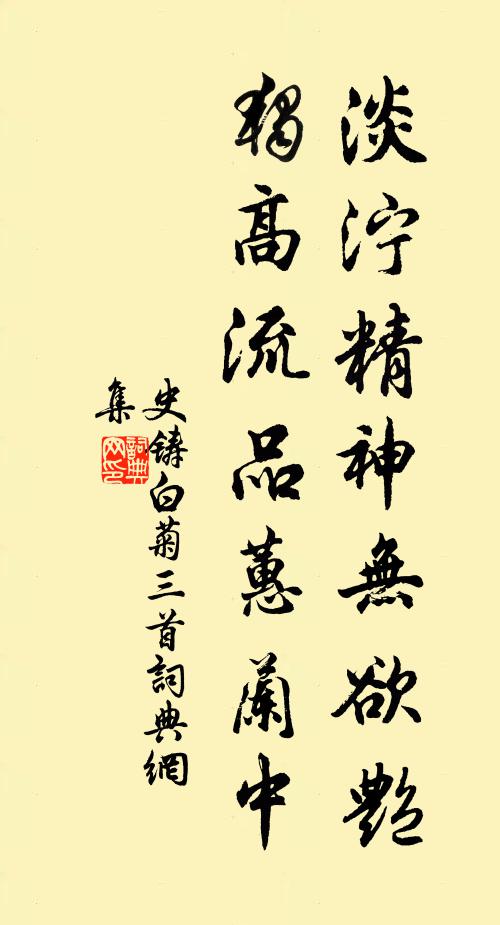 淡泞精神無欲艷
獨高流品蕙蘭中
史鑄白菊三首詞典網
集
詞典
网印